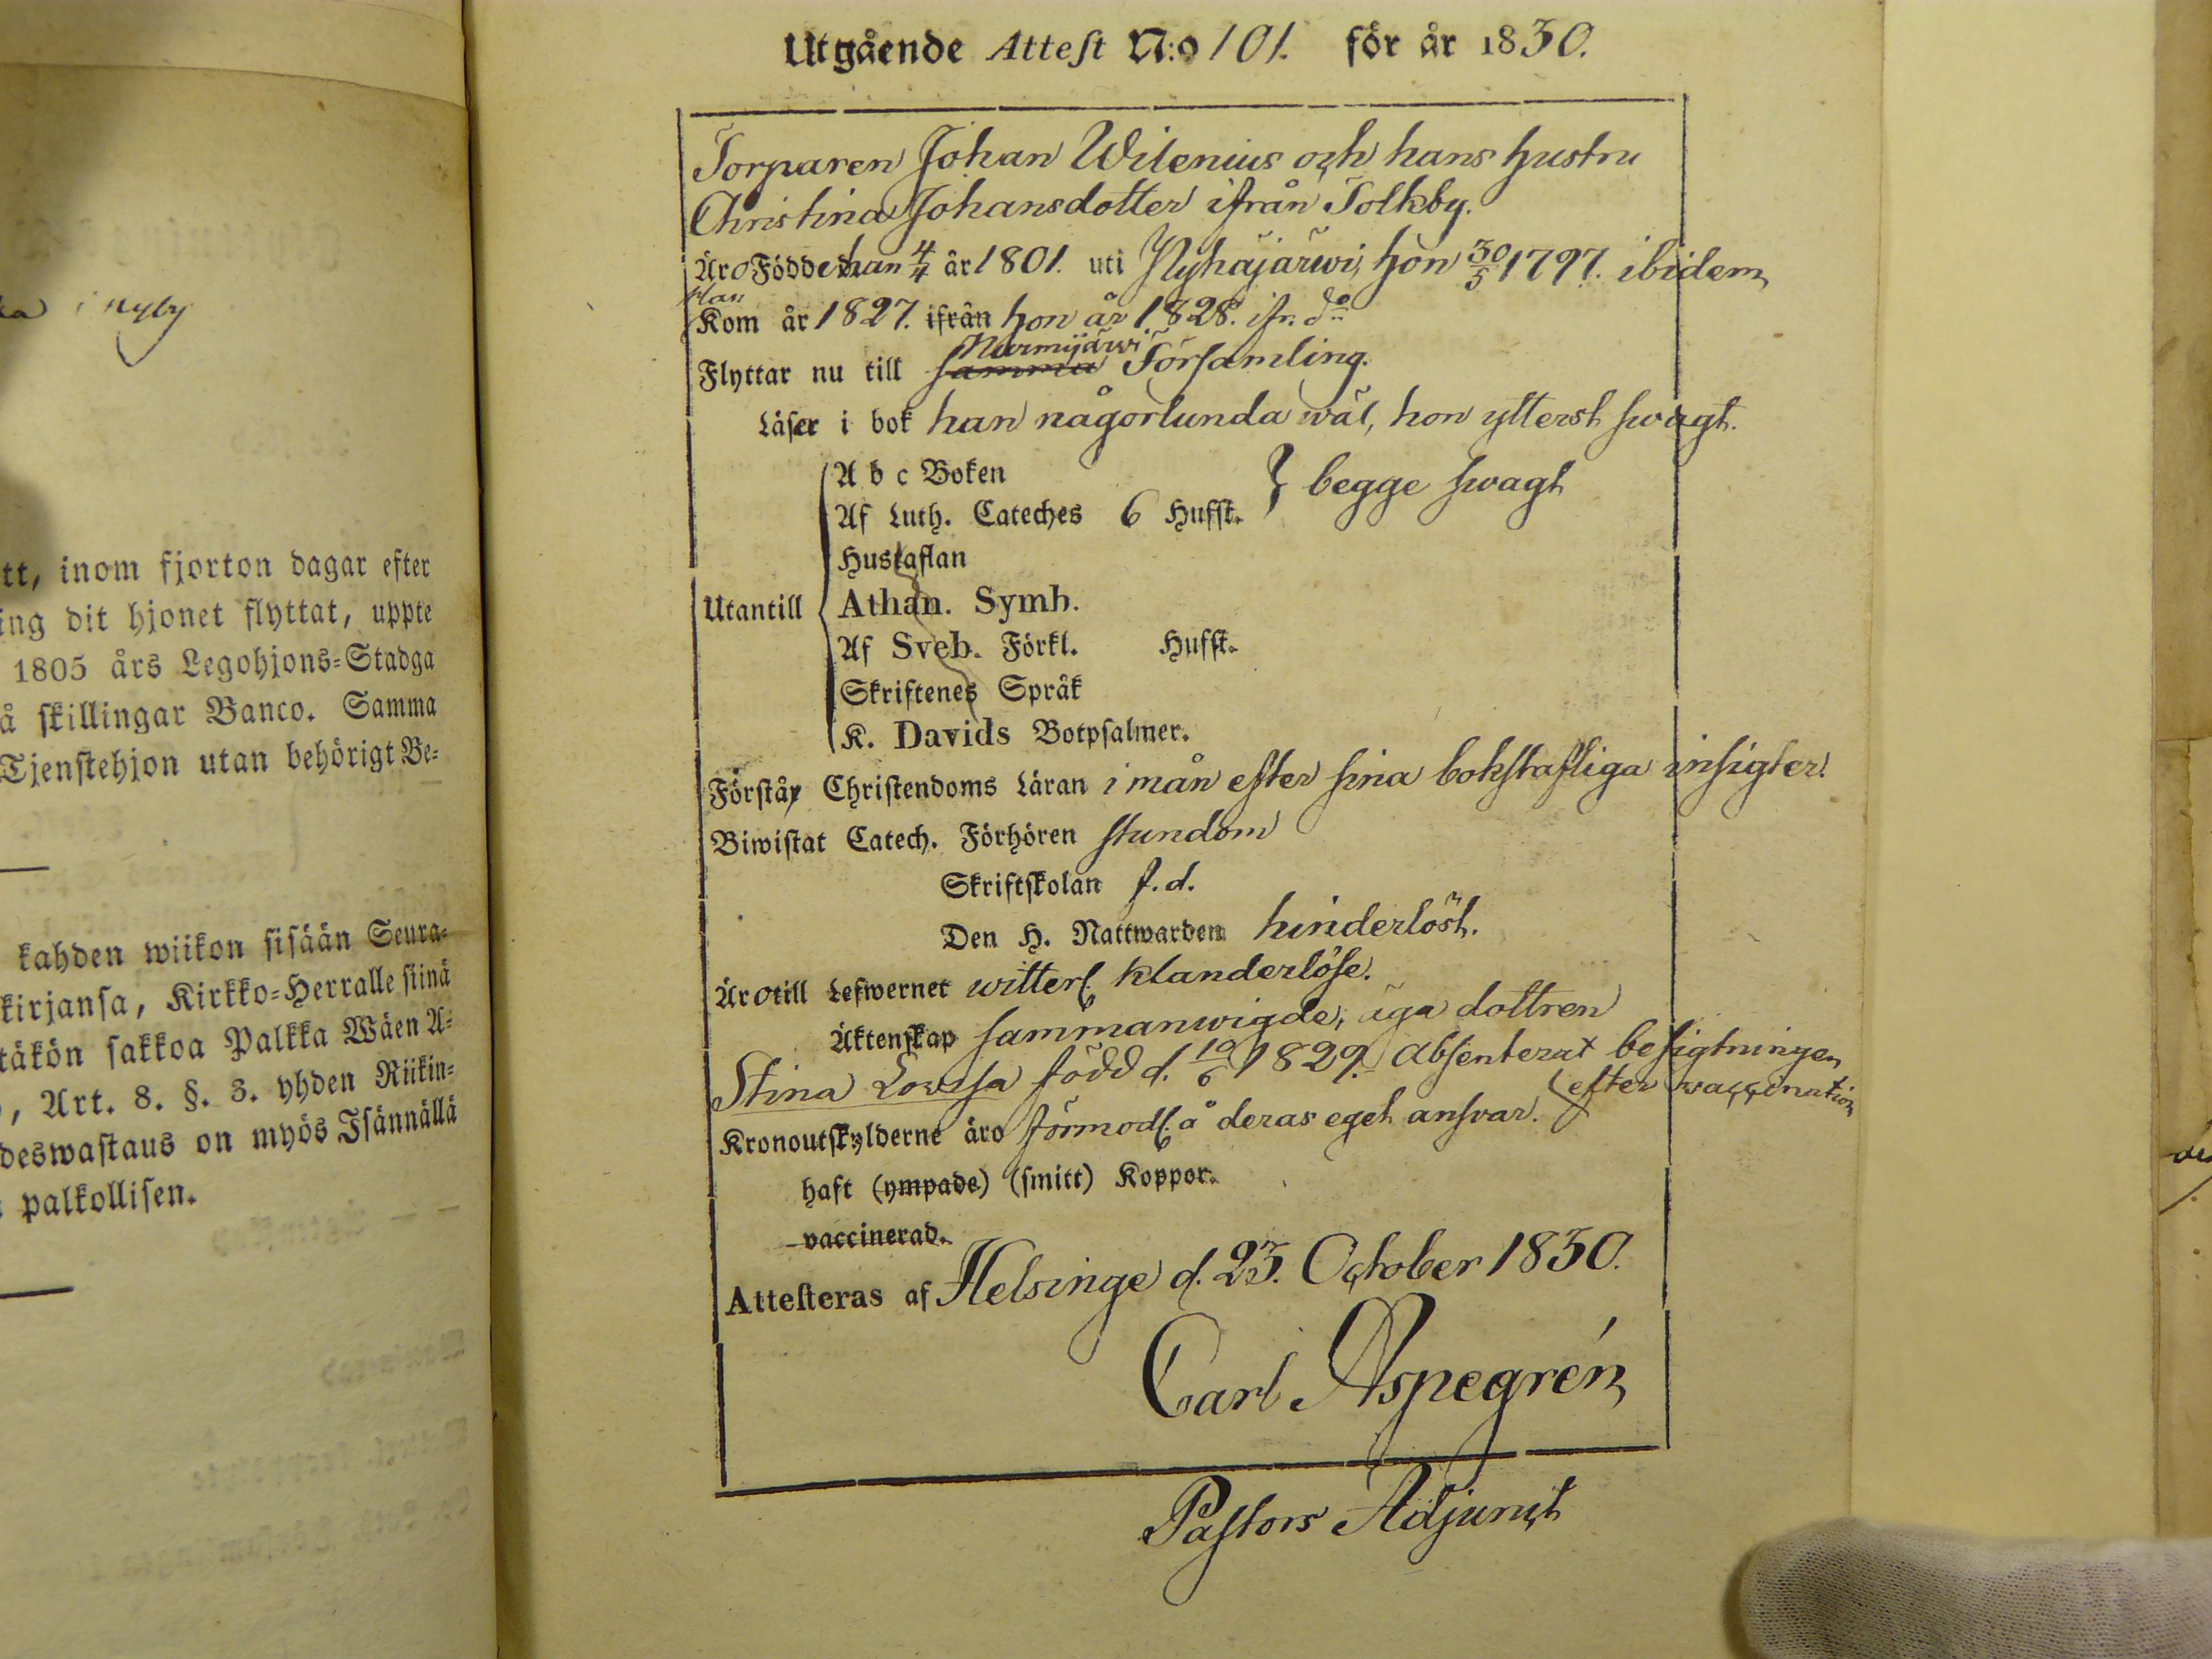 ka i nyby
tt, inom fjorton dagar efter
ing dit hjonet flyttat, uppte
1805 års Legohjons-Stadga
å skillingar Banco. Samma
Tjenstehjon utan behörigt Be-
kahden wiikon sisään Seura-
kirjansa, Kirkko-Herralle siinä
täkön sakkoa Palkka Wäen A-
, Art. 8. §. 3. yhden Riikin-
deswastaus on myös Isännällä
palkollisen.
Utgående Attest N:o 101. för år 1830.
Torparen Johan Wilenius och hans hustru
Christina Johansdotter ifrån Tolkby.
Äro Födde han 4/4 år 1801. uti Pyhäjärwi, hon 30/5 1797. ibidem
Han
Kom år 1827. ifrån hon år 1828. ifr. do
Nurmijärwi
Flyttar nu till samma Församling.
Läser i bok han någorlunda wäl, hon ytterst swagt.
A b c Boken
Af Luth. Cateches 6 Hufst. } begge swagt
Hustaflan
Utantill Athan. Symb.
Af Sveb. Förkl. Hufst.
Skriftenes Språk
K. Davids Botpsalmer.
Förstår Christendoms Läran i mån efter sina bokstafliga insigter.
Biwistat Catech. Förhören stundom
Skriftskolan f.d.
Den H. Nattwarden hinderlöst.
Äro till Lefwernet witterl. klanderlöse.
Äktenskap sammanwigde, äga dottren
Stina Lowisa född d. 19/6 1829. Absenterat besigtningen
efter waccination
Kronoutskylderne äro förmodl. å deras eget answar.
haft (ympade) (smitt) Koppor.
vaccinerad.
Attesteras af Helsinge d. 23. October 1830.
Carl Aspegrén
Pastors Adjunct